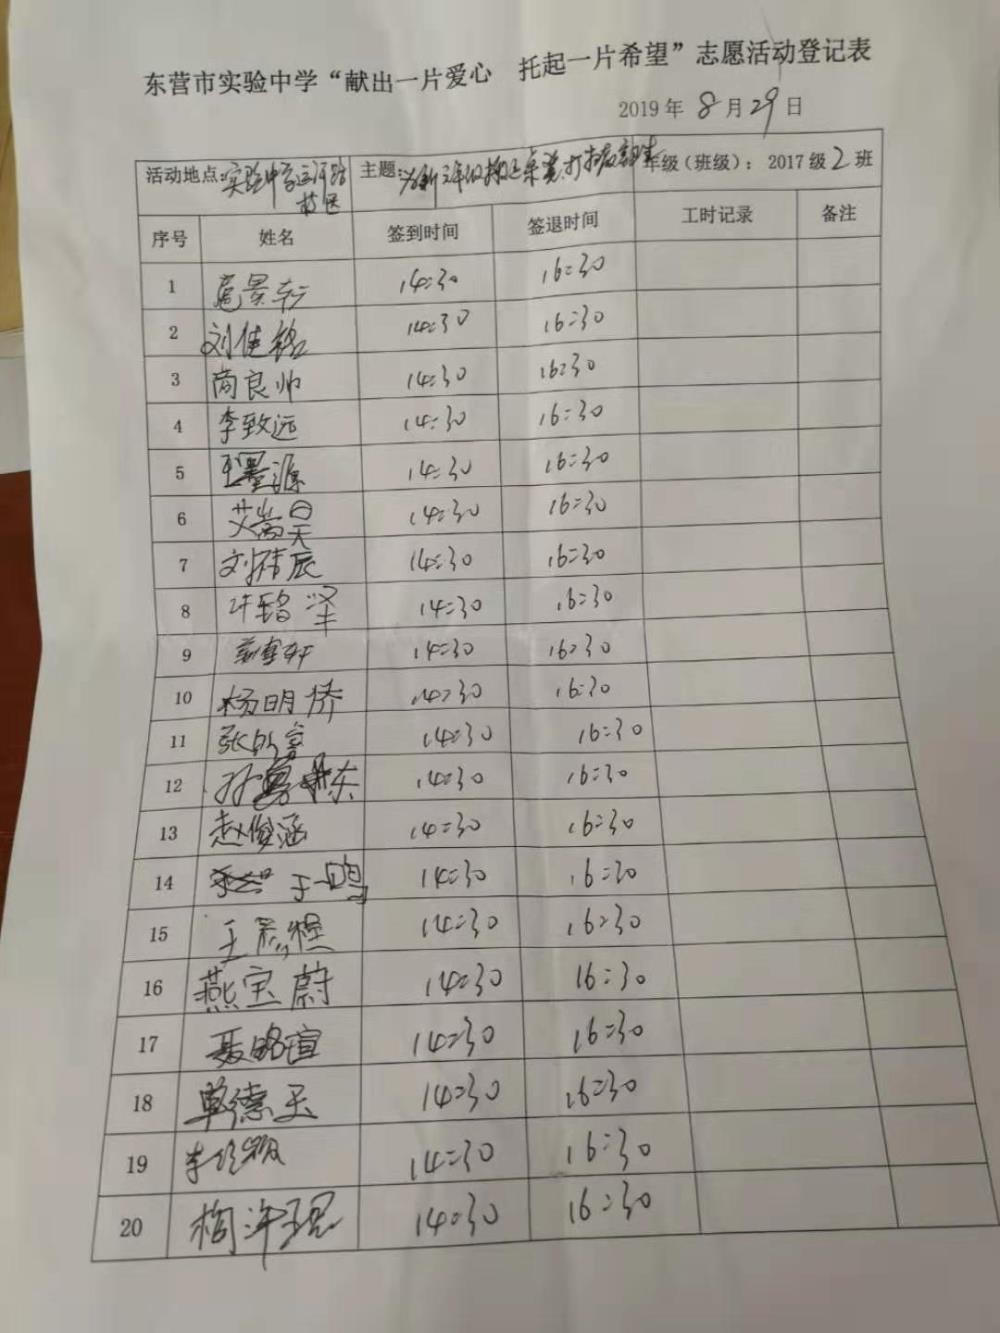 东营市实验中学“献出一片爱心 托起一片希望”志愿活动登记表
2019年8月29日
活动地点:实验中学运河路校区 主题: 年级(班级):2017级2班
序号 姓名 签到时间 签退时间 工时记录 备注
1 扈景 14:30 16:30
2 刘佳铭 14:30 16:30
3 尚良帅 14:30 16:30
4 李致远 14:30 16:30
5 王墨源 14:30 16:30
6 艾嵩昊 14:30 16:30
7 刘 辰 14:30 16:30
8 许铭泽 14:30 16:30
9 14:30 16:30
10 杨明桥 14:30 16:30
11 张 14:30 16:30
12 孙 东 14:30 16:30
13 赵俊涵 14:30 16:30
14 于一鸣 14:30 16:30
15 王彦程 14:30 16:30
16 燕宝蔚 14:30 16:30
17 聂晧瑄 14:30 16:30
18 单德 14:30 16:30
19 李 14:30 16:30
20 14:30 16:30